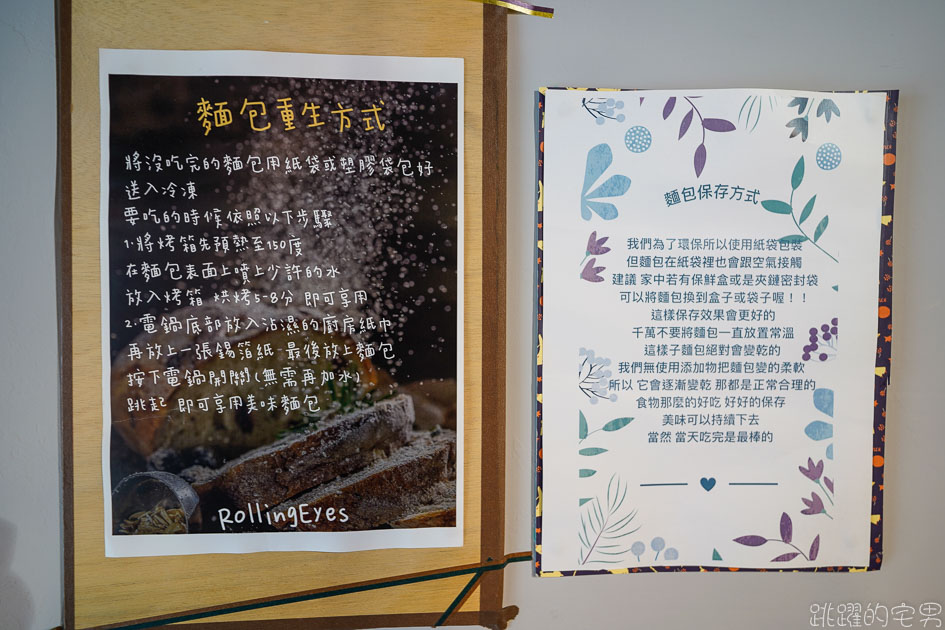 麵包重生方式
將沒吃完的麵包用紙袋或塑膠袋包好
送入冷凍
要吃的時候依照以下步驟
1.將烤箱先預熱至150度
在麵包表面上噴上少許的水
放入烤箱 烘烤5-8分 即可享用
2.電鍋底部放入沾濕的廚房紙巾
再放上一張錫箔紙 最後放上麵包
按下電鍋開關(無需再加水)
跳起 即可享用美味麵包
RollingEyes
麵包保存方式
我們為了環保所以使用紙袋包裝
但麵包在紙袋裡也會跟空氣接觸
建議 家中若有保鮮盒或是夾鏈密封袋
可以將麵包換到盒子或袋子喔！！
這樣保存效果會更好的
千萬不要將麵包一直放置常溫
這樣子麵包絕對會變乾的
我們無使用添加物把麵包變的柔軟
所以 它會逐漸變乾 那都是正常合理的
食物那麼的好吃 好好的保存
美味可以持續下去
當然 當天吃完是最棒的
跳躍的宅男